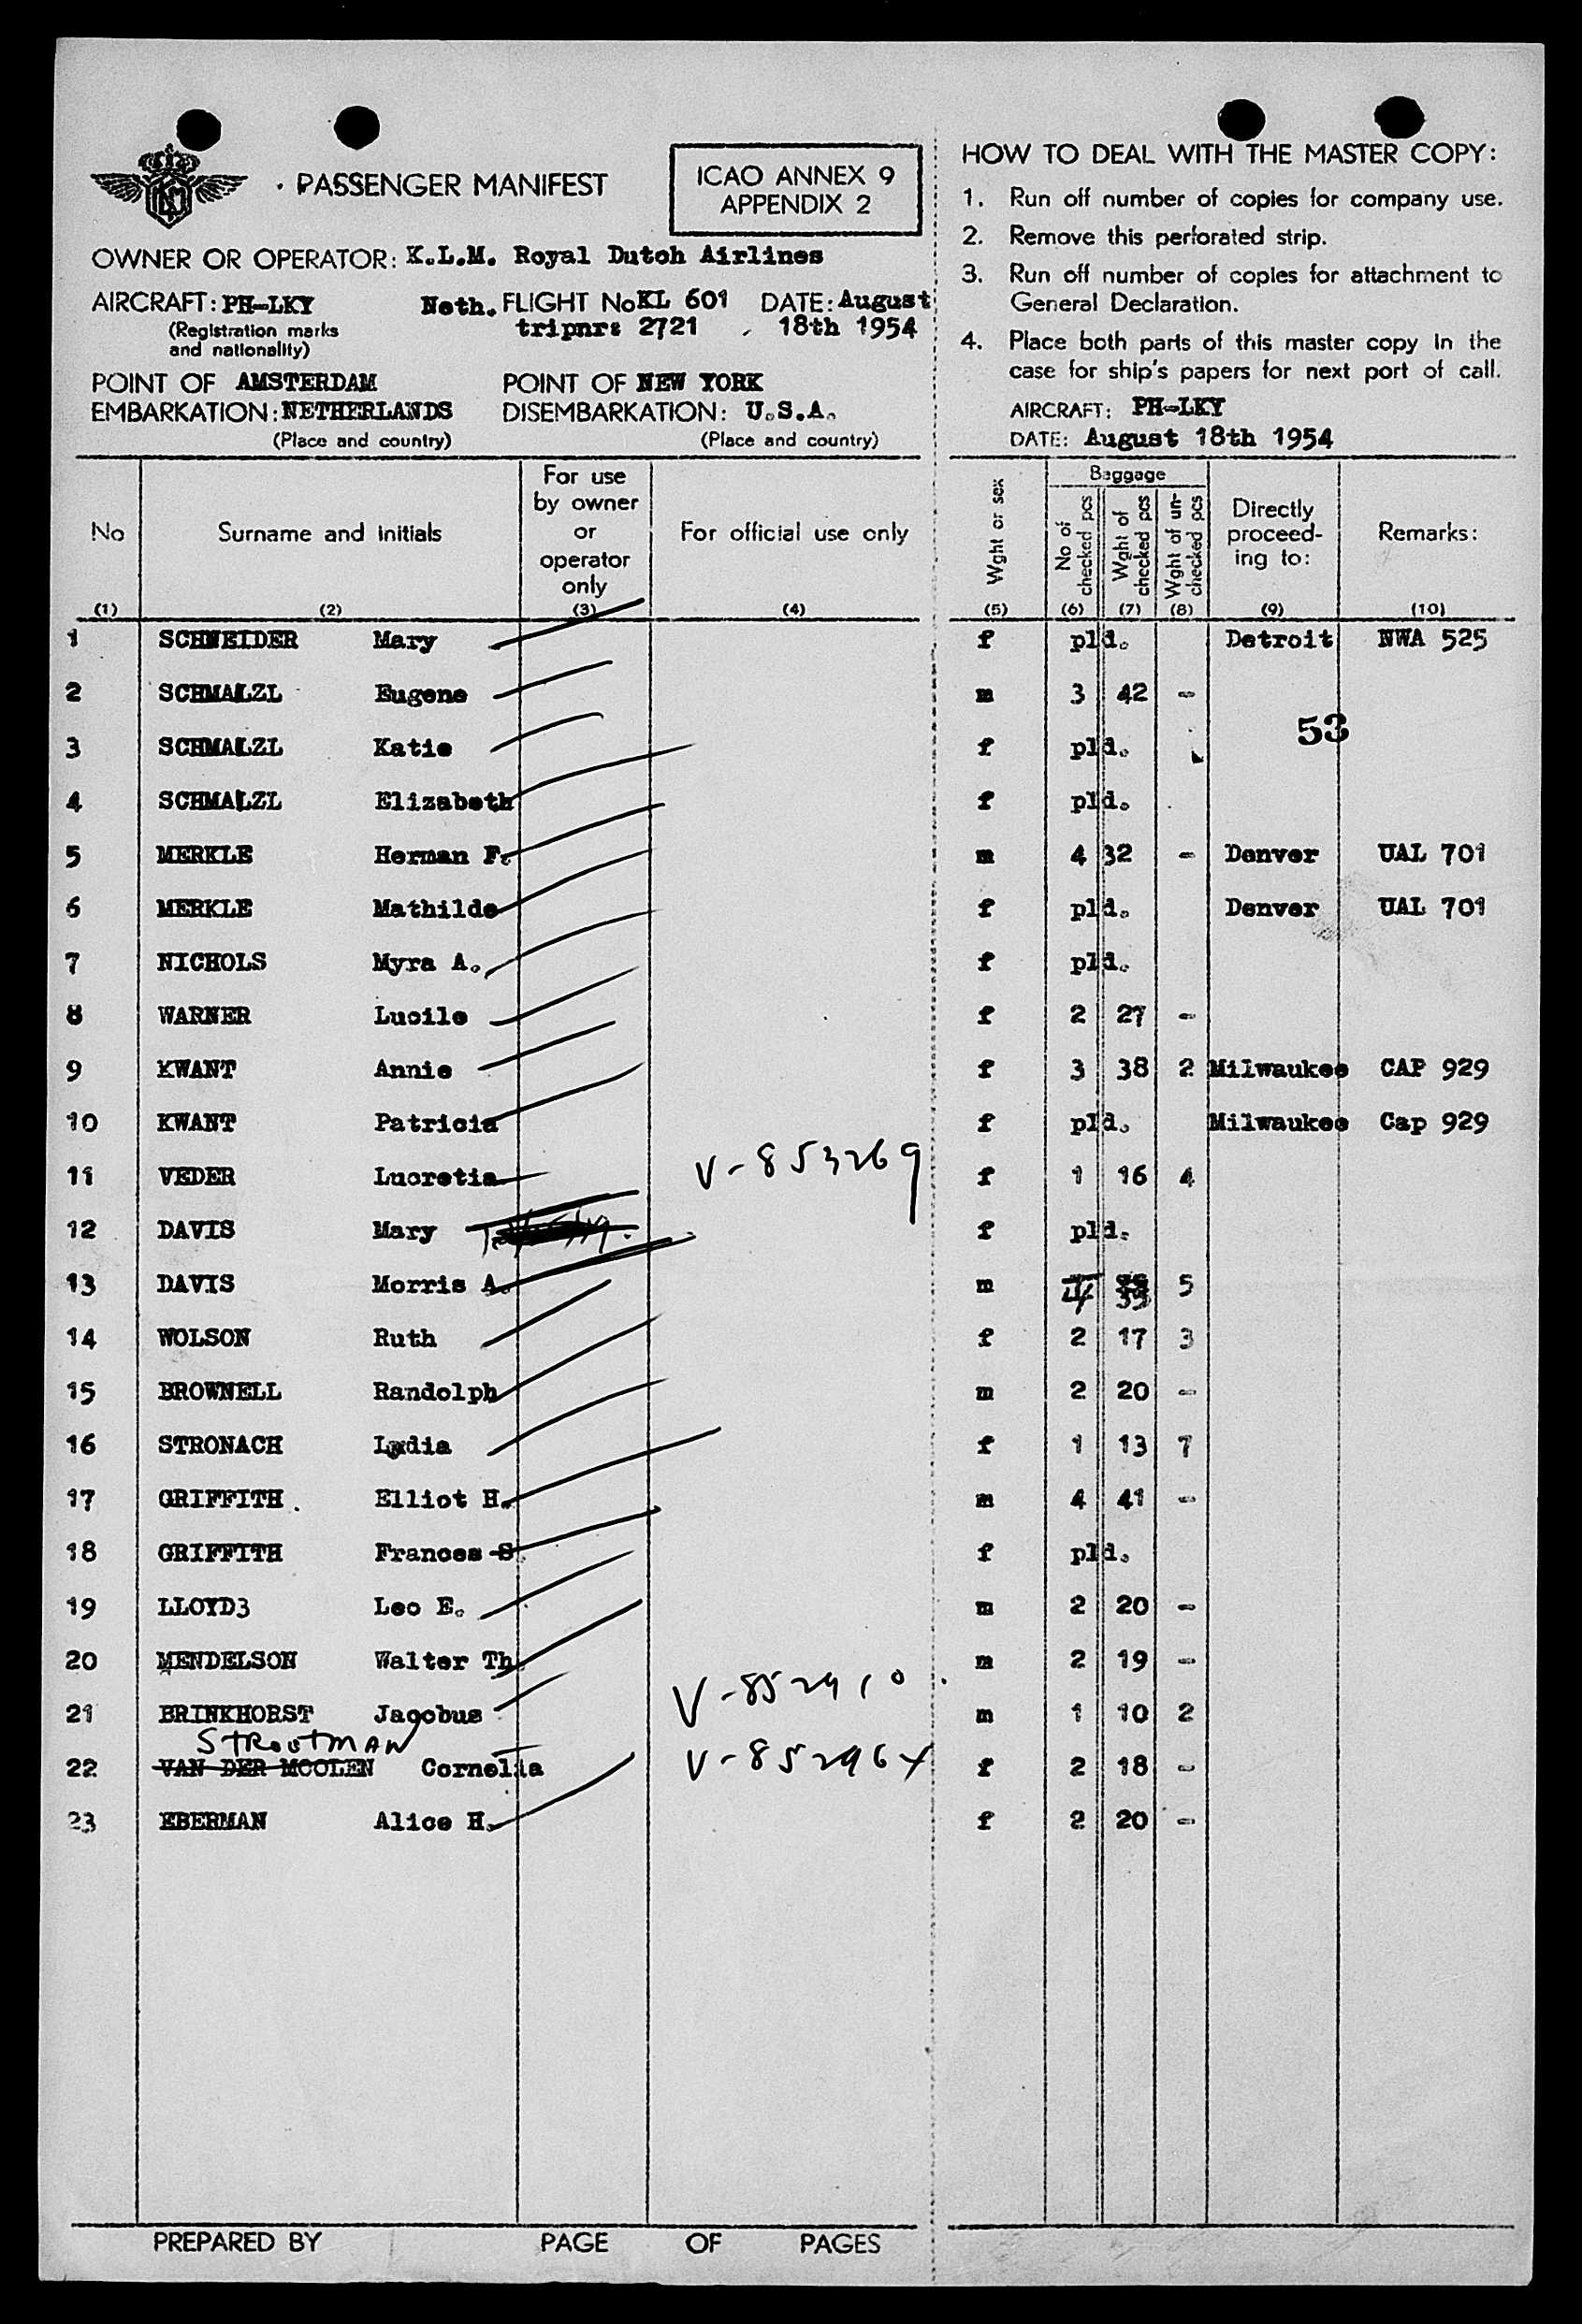 PASSENGER MANIFEST
ICAO ANNEX 9
APPENDIX 2
OWNER OR OPERATOR: K.L.M. Royal Dutch Airlines
AIRCRAFT: PH-LKY Neth. FLIGHT No KL 601 DATE: August
(Registration marks tripnr: 2721 18th 1954
and nationality)
POINT OF AMSTERDAM POINT OF NEW YORK
EMBARKATION: NETHERLANDS DISEMBARKATION: U.S.A.
(Place and country) (Place and country)
HOW TO DEAL WITH THE MASTER COPY:
1. Run off number of copies for company use.
2. Remove this perforated strip.
3. Run off number of copies for attachment to
General Declaration.
4. Place both parts of this master copy in the
case for ship's papers for next port of call.
AIRCRAFT: PH-LKY
DATE: August 18th 1954
No Surname and Initials For use by owner or operator only For official use only Wght or sex Baggage No of checked pcs Wght of checked pcs Wght of un-checked pcs Directly proceed-ing to: Remarks:
(1) (2) (3) (4) (5) (6) (7) (8) (9) (10)
1 SCHNEIDER Mary f pld. Detroit NWA 525
2 SCHMALZL Eugene m 3 42 -
53
3 SCHMALZL Katie f pld.
4 SCHMALZL Elizabeth f pld.
5 MERKLE Herman F. m 4 32 - Denver UAL 701
6 MERKLE Mathilde f pld. Denver UAL 701
7 NICHOLS Myra A. f pld.
8 WARNER Lucile f 2 27 -
9 KWANT Annie f 3 38 2 Milwaukee CAP 929
10 KWANT Patricia f pld. Milwaukee Cap 929
11 VEDER Lucretia V-853269 f 1 16 4
12 DAVIS Mary f pld.
13 DAVIS Morris A. m 5
14 WOLSON Ruth f 2 17 3
15 BROWNELL Randolph m 2 20 -
16 STRONACH Lydia f 1 13 7
17 GRIFFITH. Elliot H. m 4 41 -
18 GRIFFITH Frances S. f pld.
19 LLOYD3 Leo E. m 2 20 -
20 MENDELSON Walter Th. m 2 19 -
21 BRINKHORST Jacobus V-852910 m 1 10 2
STROUTMAN
22 VAN DER MOOLEN Cornelia V-852964 f 2 18 -
23 EBERMAN Alice H. f 2 20 -
PREPARED BY PAGE OF PAGES